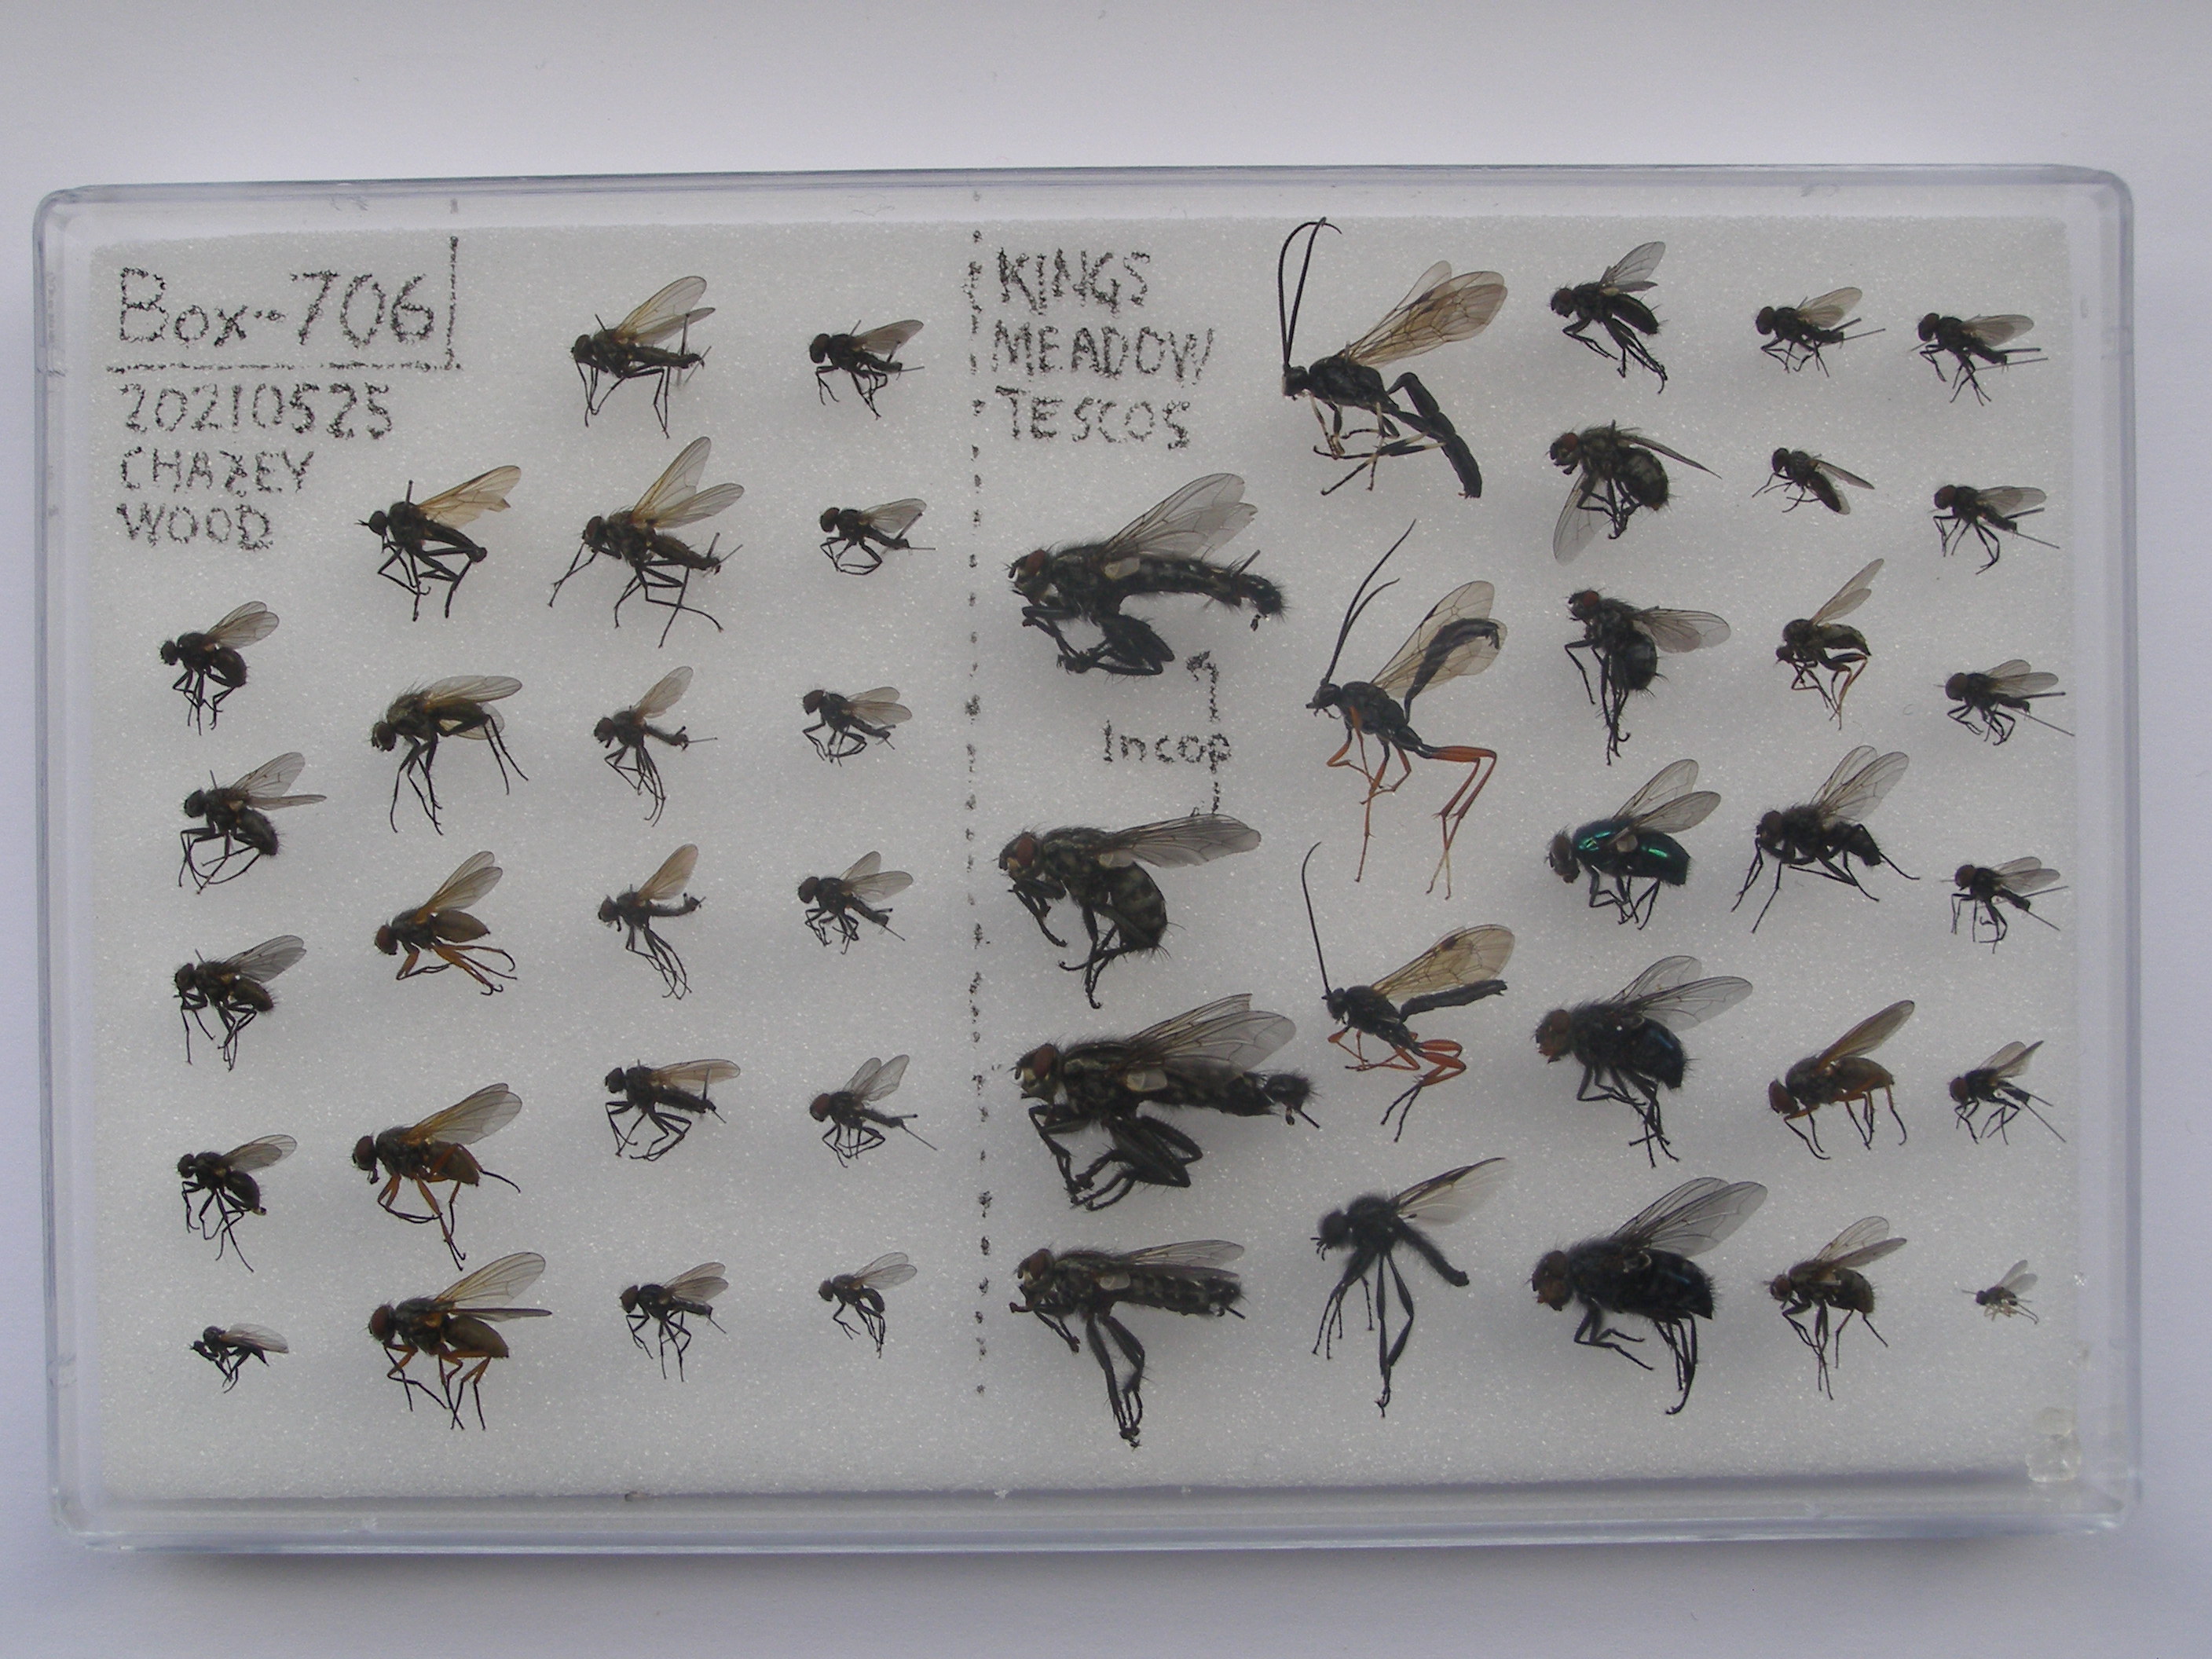 Box-706
20210525
CHAZEY
WOOD
KINGS
MEADOW
TESCOS
Incop